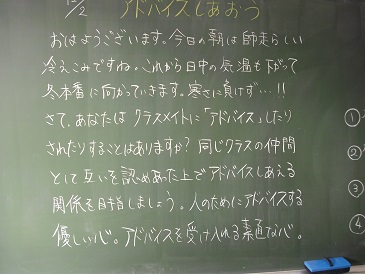 12/2 アドバイスしあおう
おはようございます。今日の朝は師走らしい
冷えこみですね。これから日中の気温も下がって
冬本番に向かっていきます。寒さに負けず…!!
さて、あなたは クラスメイトに「アドバイス」したり
されたりすることはありますか? 同じクラスの仲間
として互いを認めあった上でアドバイスしあえる
関係を目指しましょう。人のためにアドバイスする
優しい心。アドバイスを受け入れる素適な心。
①
②
③
④